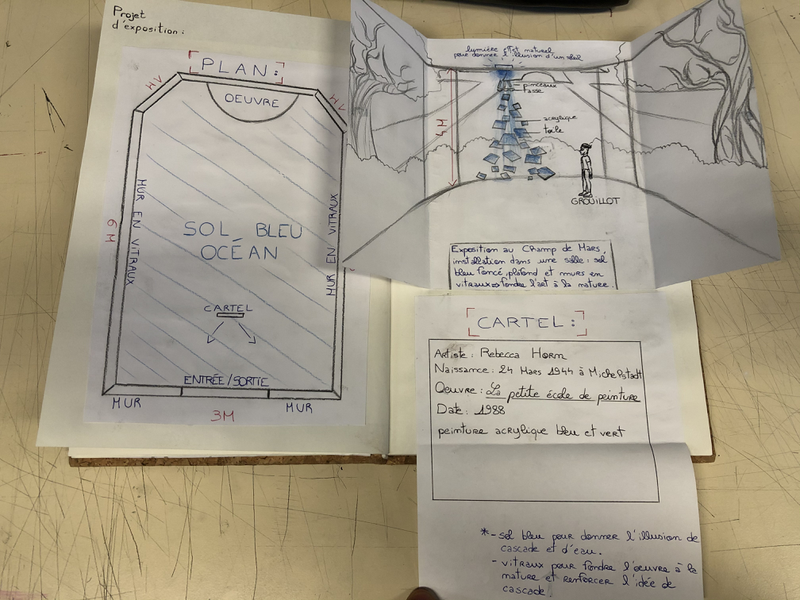 Projet
d'exposition :
PLAN :
1M
1M
OEUVRE
MUR EN VITRAUX
6M
MUR EN VITRAUX
SOL BLEU
OCÉAN
CARTEL
ENTRÉE/SORTIE
MUR
3M
MUR
lumière naturel
pour donner l'illusion d'un
pinceaux
tasse
acrylique
toile
4M
GROUILLOT
Exposition au Champ de Mars,
installation dans une salle : sol
bleu foncé, plafond et murs en
vitraux fondre l'art à la nature.
CARTEL :
Artiste : Rebecca Horm
Naissance : 24 Mars 1944 à Michelstadt
Oeuvre : La petite école de peinture
Date : 1988
peinture acrylique bleu et vert
*- sol bleu pour donner l'illusion de
cascade et d'eau.
- vitraux pour fondre l'oeuvre à la
nature et renforcer l'idée de
cascade.